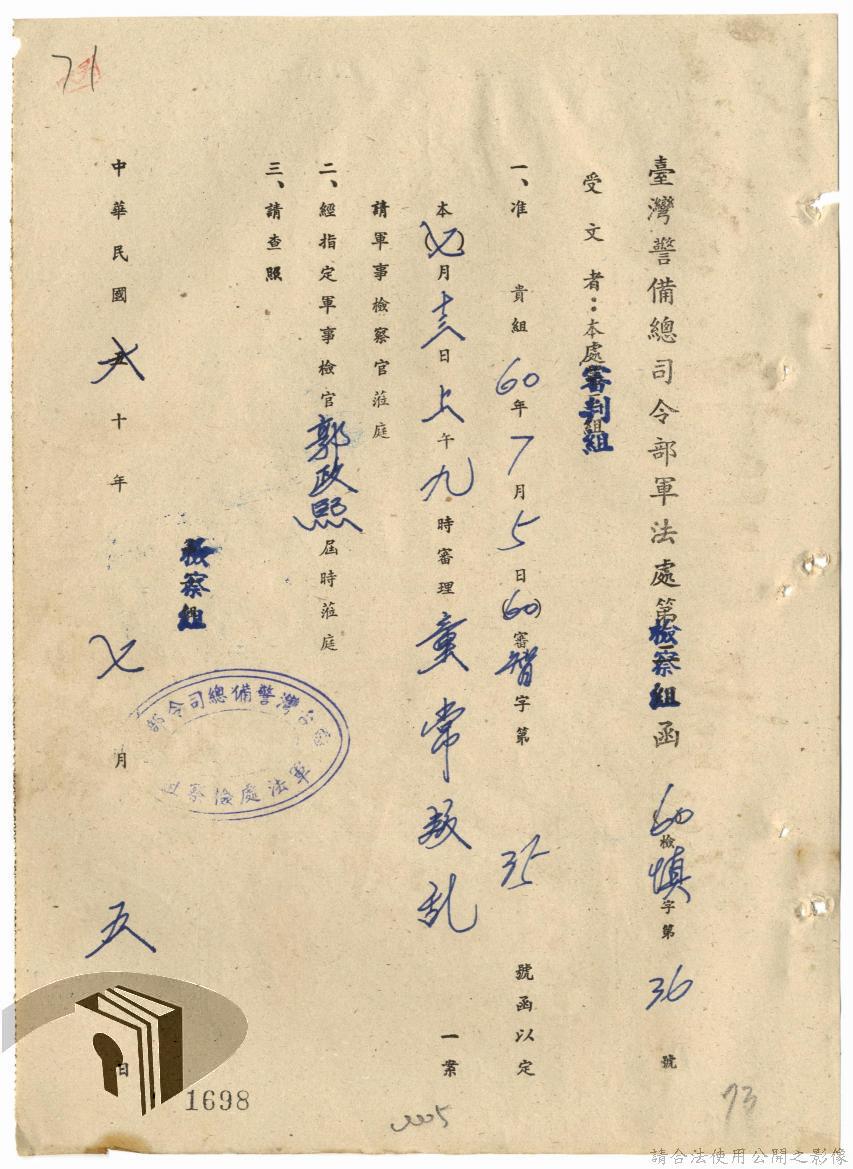 71
臺灣警備總司令部軍法處第檢察組函 60檢慎字第36號
受文者：本處審判組
一、准 貴組60年7月5日(60)審智字第35號函以定
本(七)月十三日上午九時審理童常叛乱一案
請軍事檢察官蒞庭
二、經指定軍事檢官郭政熙屆時蒞庭
三、請查照
檢察組
台灣警備總司令部
軍法處檢察
中華民國六十年七月五日
1698
73
請合法使用公開之影像